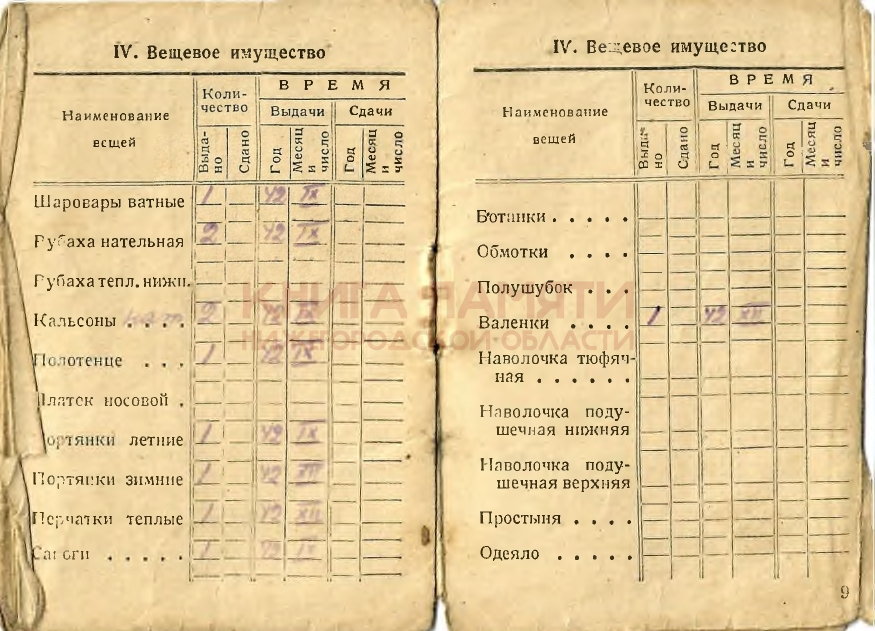 IV. Вещевое имущество
Наименование вещей
Количество
ВРЕМЯ
Выдачи
Сдачи
Выдано
Сдано
Год
Месяц и число
Год
Месяц и число
Шаровары ватные 1 42 IX
Рубаха нательная 2 42 IX
Рубаха тепл. нижн.
Кальсоны . . . . 2 42 IX
Полотенце . . . 1 42 IX
Платок носовой .
Портянки летние 1 42 IX
Портянки зимние 1 42 XII
Перчатки теплые 1 42 XII
Сапоги . . . . . 1 42 IX
IV. Вещевое имущество
Наименование
вещей
Коли-
чество
ВРЕМЯ
Выдачи
Сдачи
Выдано
Сдано
Год
Месяц и число
Год
Месяц и число
Ботинки . . . . .
Обмотки . . . .
Полушубок . . .
Валенки . . . . 1 42 XII
Наволочка тюфяч-
ная . . . . . .
Наволочка поду-
шечная нижняя
Наволочка поду-
шечная верхняя
Простыня . . . .
Одеяло . . . . .
9
КНИГА ПАМЯТИ
НИЖЕГОРОДСКОЙ ОБЛАСТИ